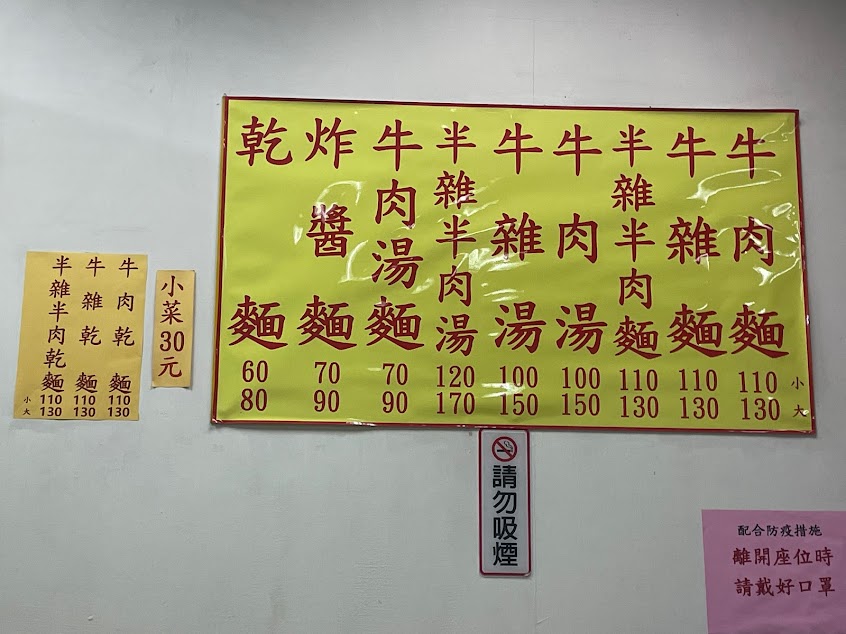 牛肉麵 110 130
牛雜麵 110 130
半雜半肉麵 110 130
牛肉湯 100 150
牛雜湯 100 150
半雜半肉湯 120 170
牛肉湯麵 70 90
炸醬麵 70 90
乾麵 60 80
小
大
小菜30元
牛肉乾麵 110 130
牛雜乾麵 110 130
半雜半肉乾麵 110 130
小
大
請勿吸煙
配合防疫措施
離開座位時
請戴好口罩